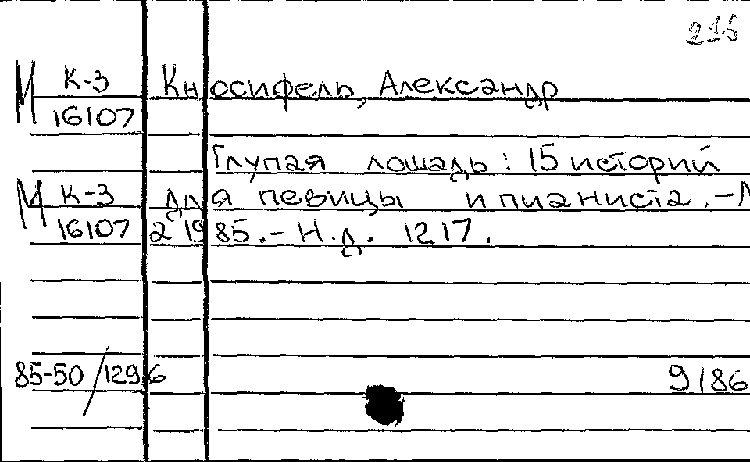 215
М К-3 Кносифель, Александр
16107
Глупая лошадь: 15 историй
М К-3 для певицы и пианиста.-М
16107 2 1985.- Н.д. 1217.
85-50/1296 9/86